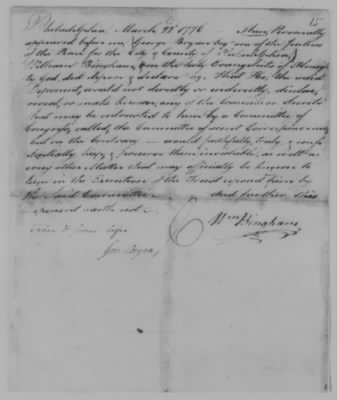 15
Philadelphia March 22 1776 Then Personally
appeared before me George Bryan Esqr one of the Justices
of the Peace for the City & County of Philadelphia,
William Bingham, on the holy Evangelists of Almighty
God, did depose & declare That He, the said
Deponent, would not directly or indirectly, disclose,
reveal, or make known any of the Councils or Secrets
that may be intrusted to him by a Committee of
Congress, called, the Committee of secret Correspondence
but on the Contrary would faithfully, truly, &
keep & preserve them inviolable, as well as
every other Matter that may officially be known to
him in the Execution of the Trust reposed in him by
the said Committee and further this
deponent saith not
Wm Bingham
Taken & sworn before
Geo. Bryan